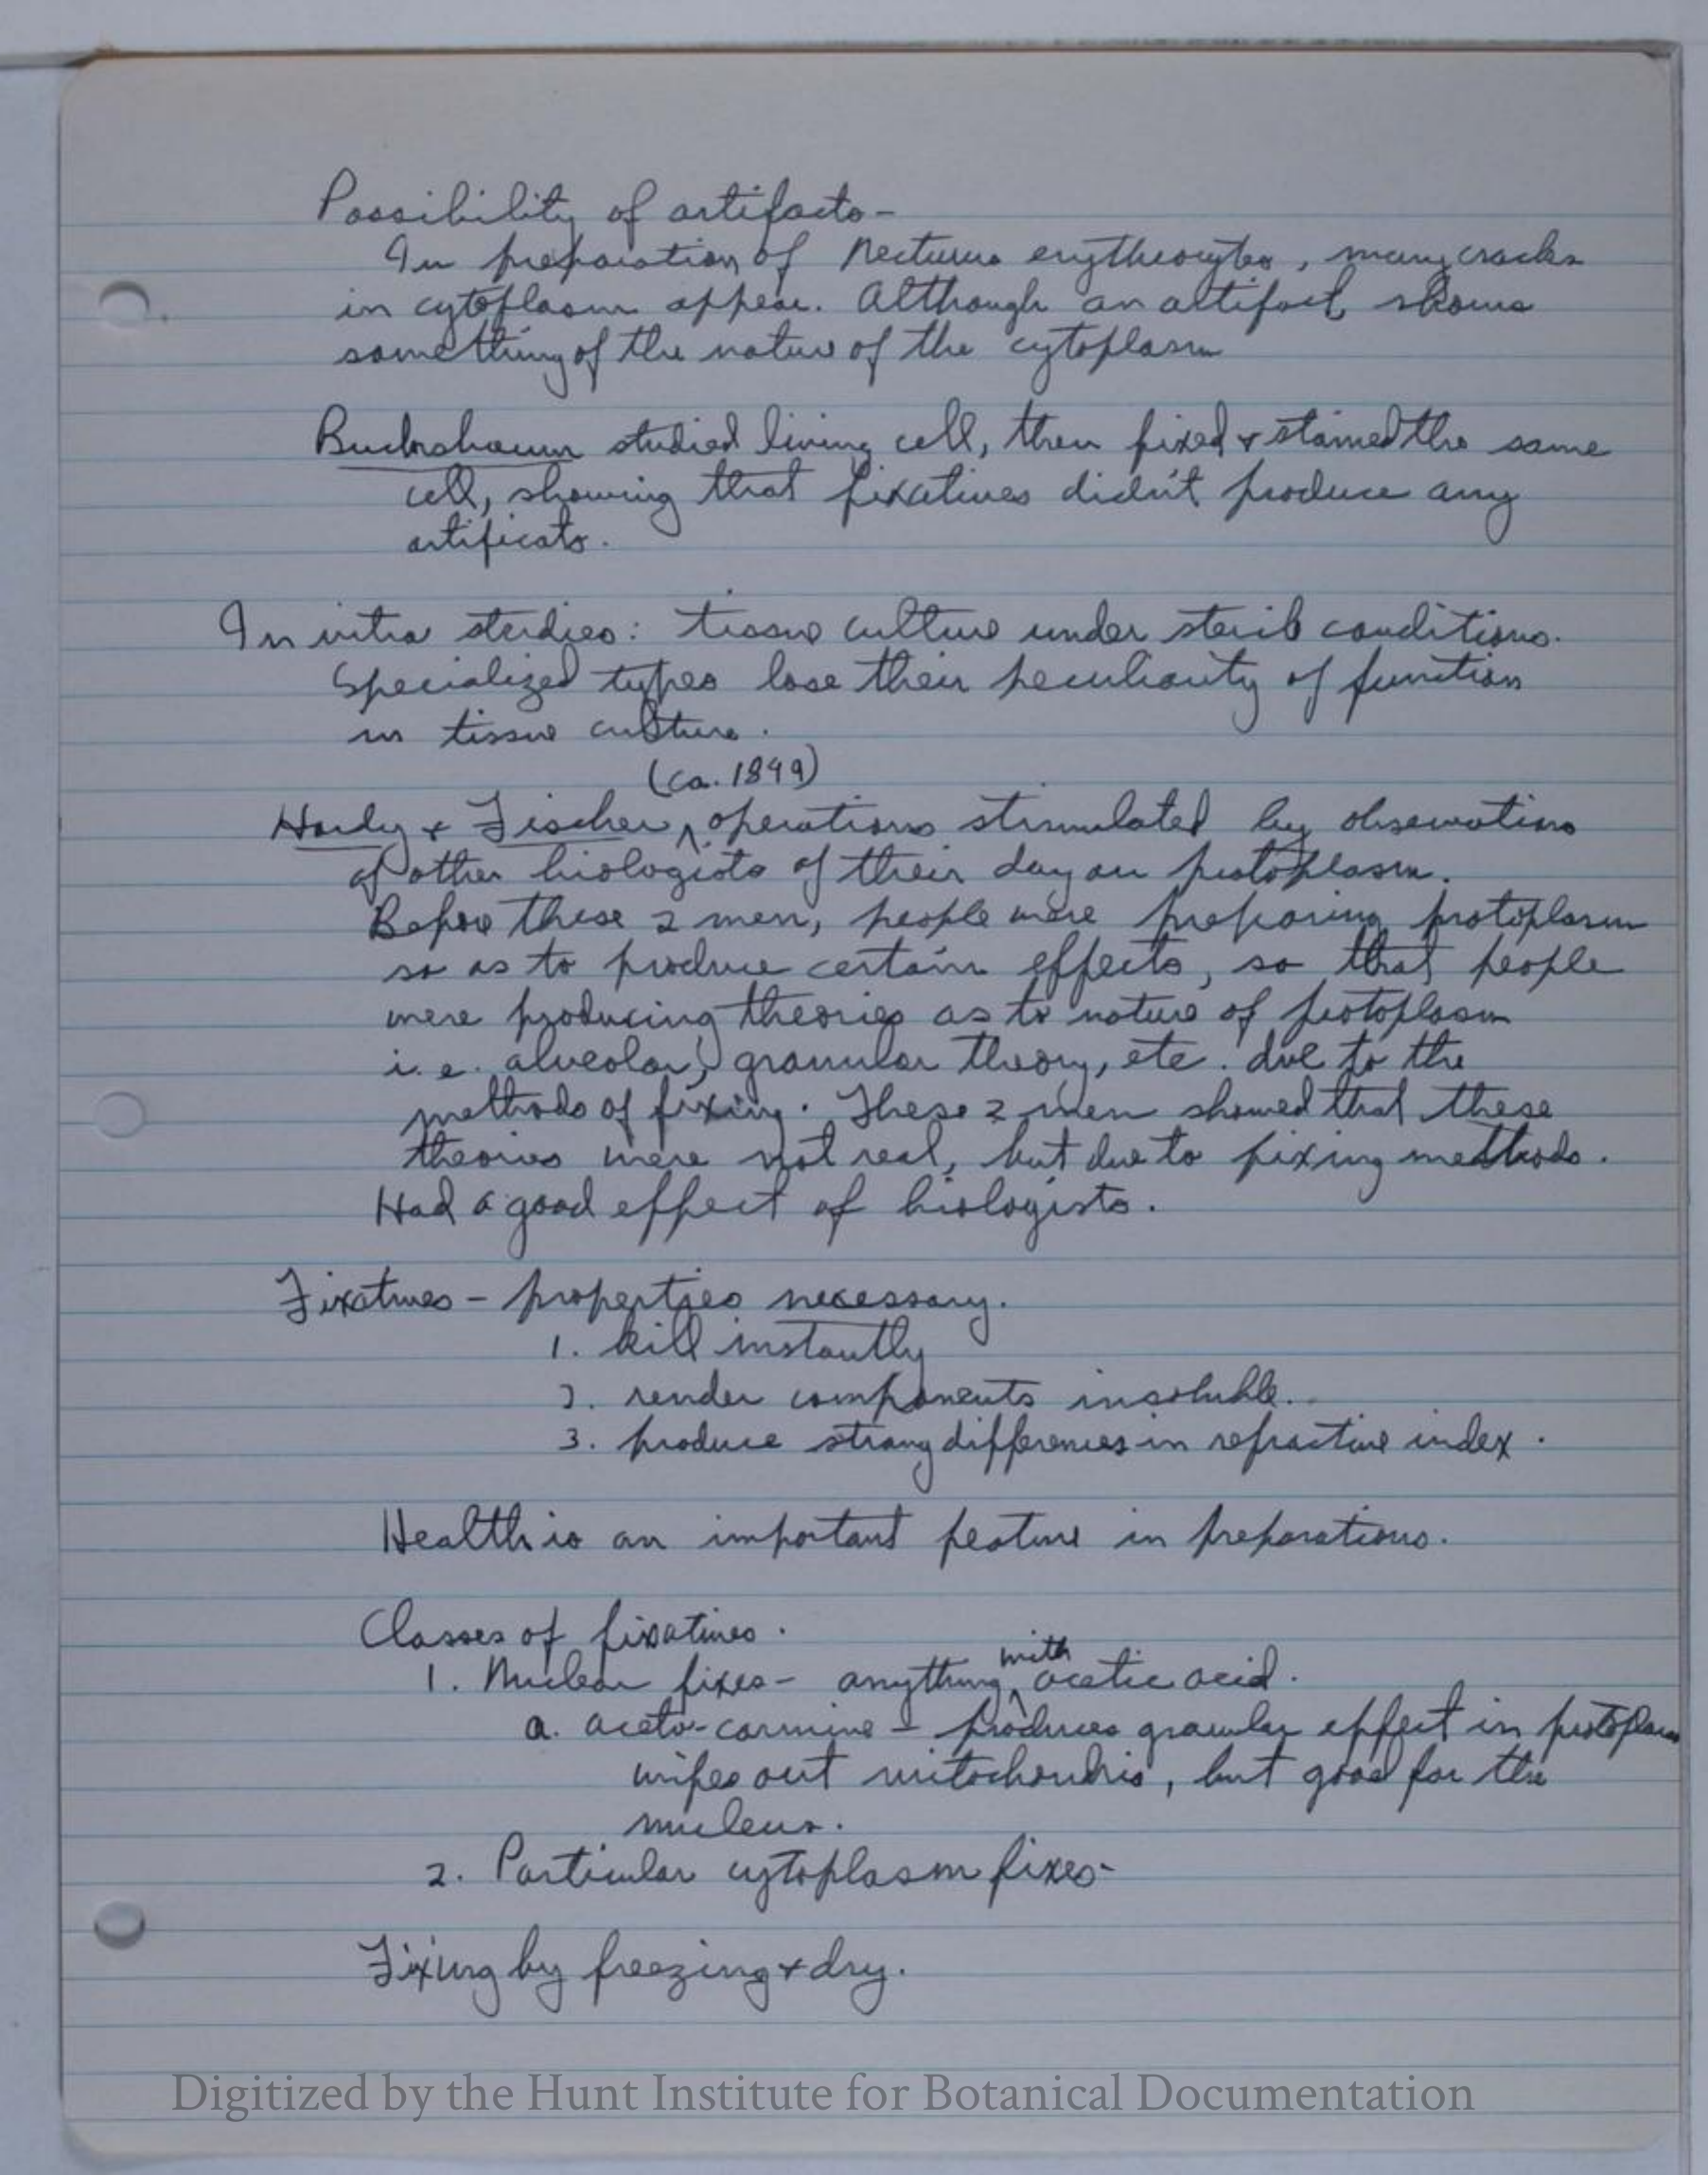 Possibility of artifacts-
In preparation of Necturus erythrocytes, many cracks
in cytoplasm appear. Although an artifact, shows
something of the nature of the cytoplasm
Buchsbaum studied living cell, then fixed & stained the same
cell, showing that fixatives didn't produce any
artificats.
In vitro studies: tissue culture under sterile conditions.
Specialized types lose their peculiarity of function
in tissue culture.
(ca. 1899)
Hardy & Fischer, operations stimulated by observations
of other biologists of their day on protoplasm.
Before these 2 men, people were preparing protoplasm
so as to produce certain effects, so that people
were producing theories as to nature of protoplasm
i.e. alveolar, granular theory, etc. due to the
methods of fixing. These 2 men showed that these
theories were not real, but due to fixing methods.
Had a good effect of biologists.
Fixatives - properties necessary.
1. kill instantly
2. render components insoluble.
3. produce strong differences in refractive index.
Health is an important feature in preparations.
Classes of fixatives.
with
1. Nuclear fixes - anything acetic acid.
a. aceto-carmine - produces granular effect in protoplasm
wipes out mitochondria, but good for the
nucleus.
2. Particular cytoplasm fixes-
Fixing by freezing & dry.
Digitized by the Hunt Institute for Botanical Documentation